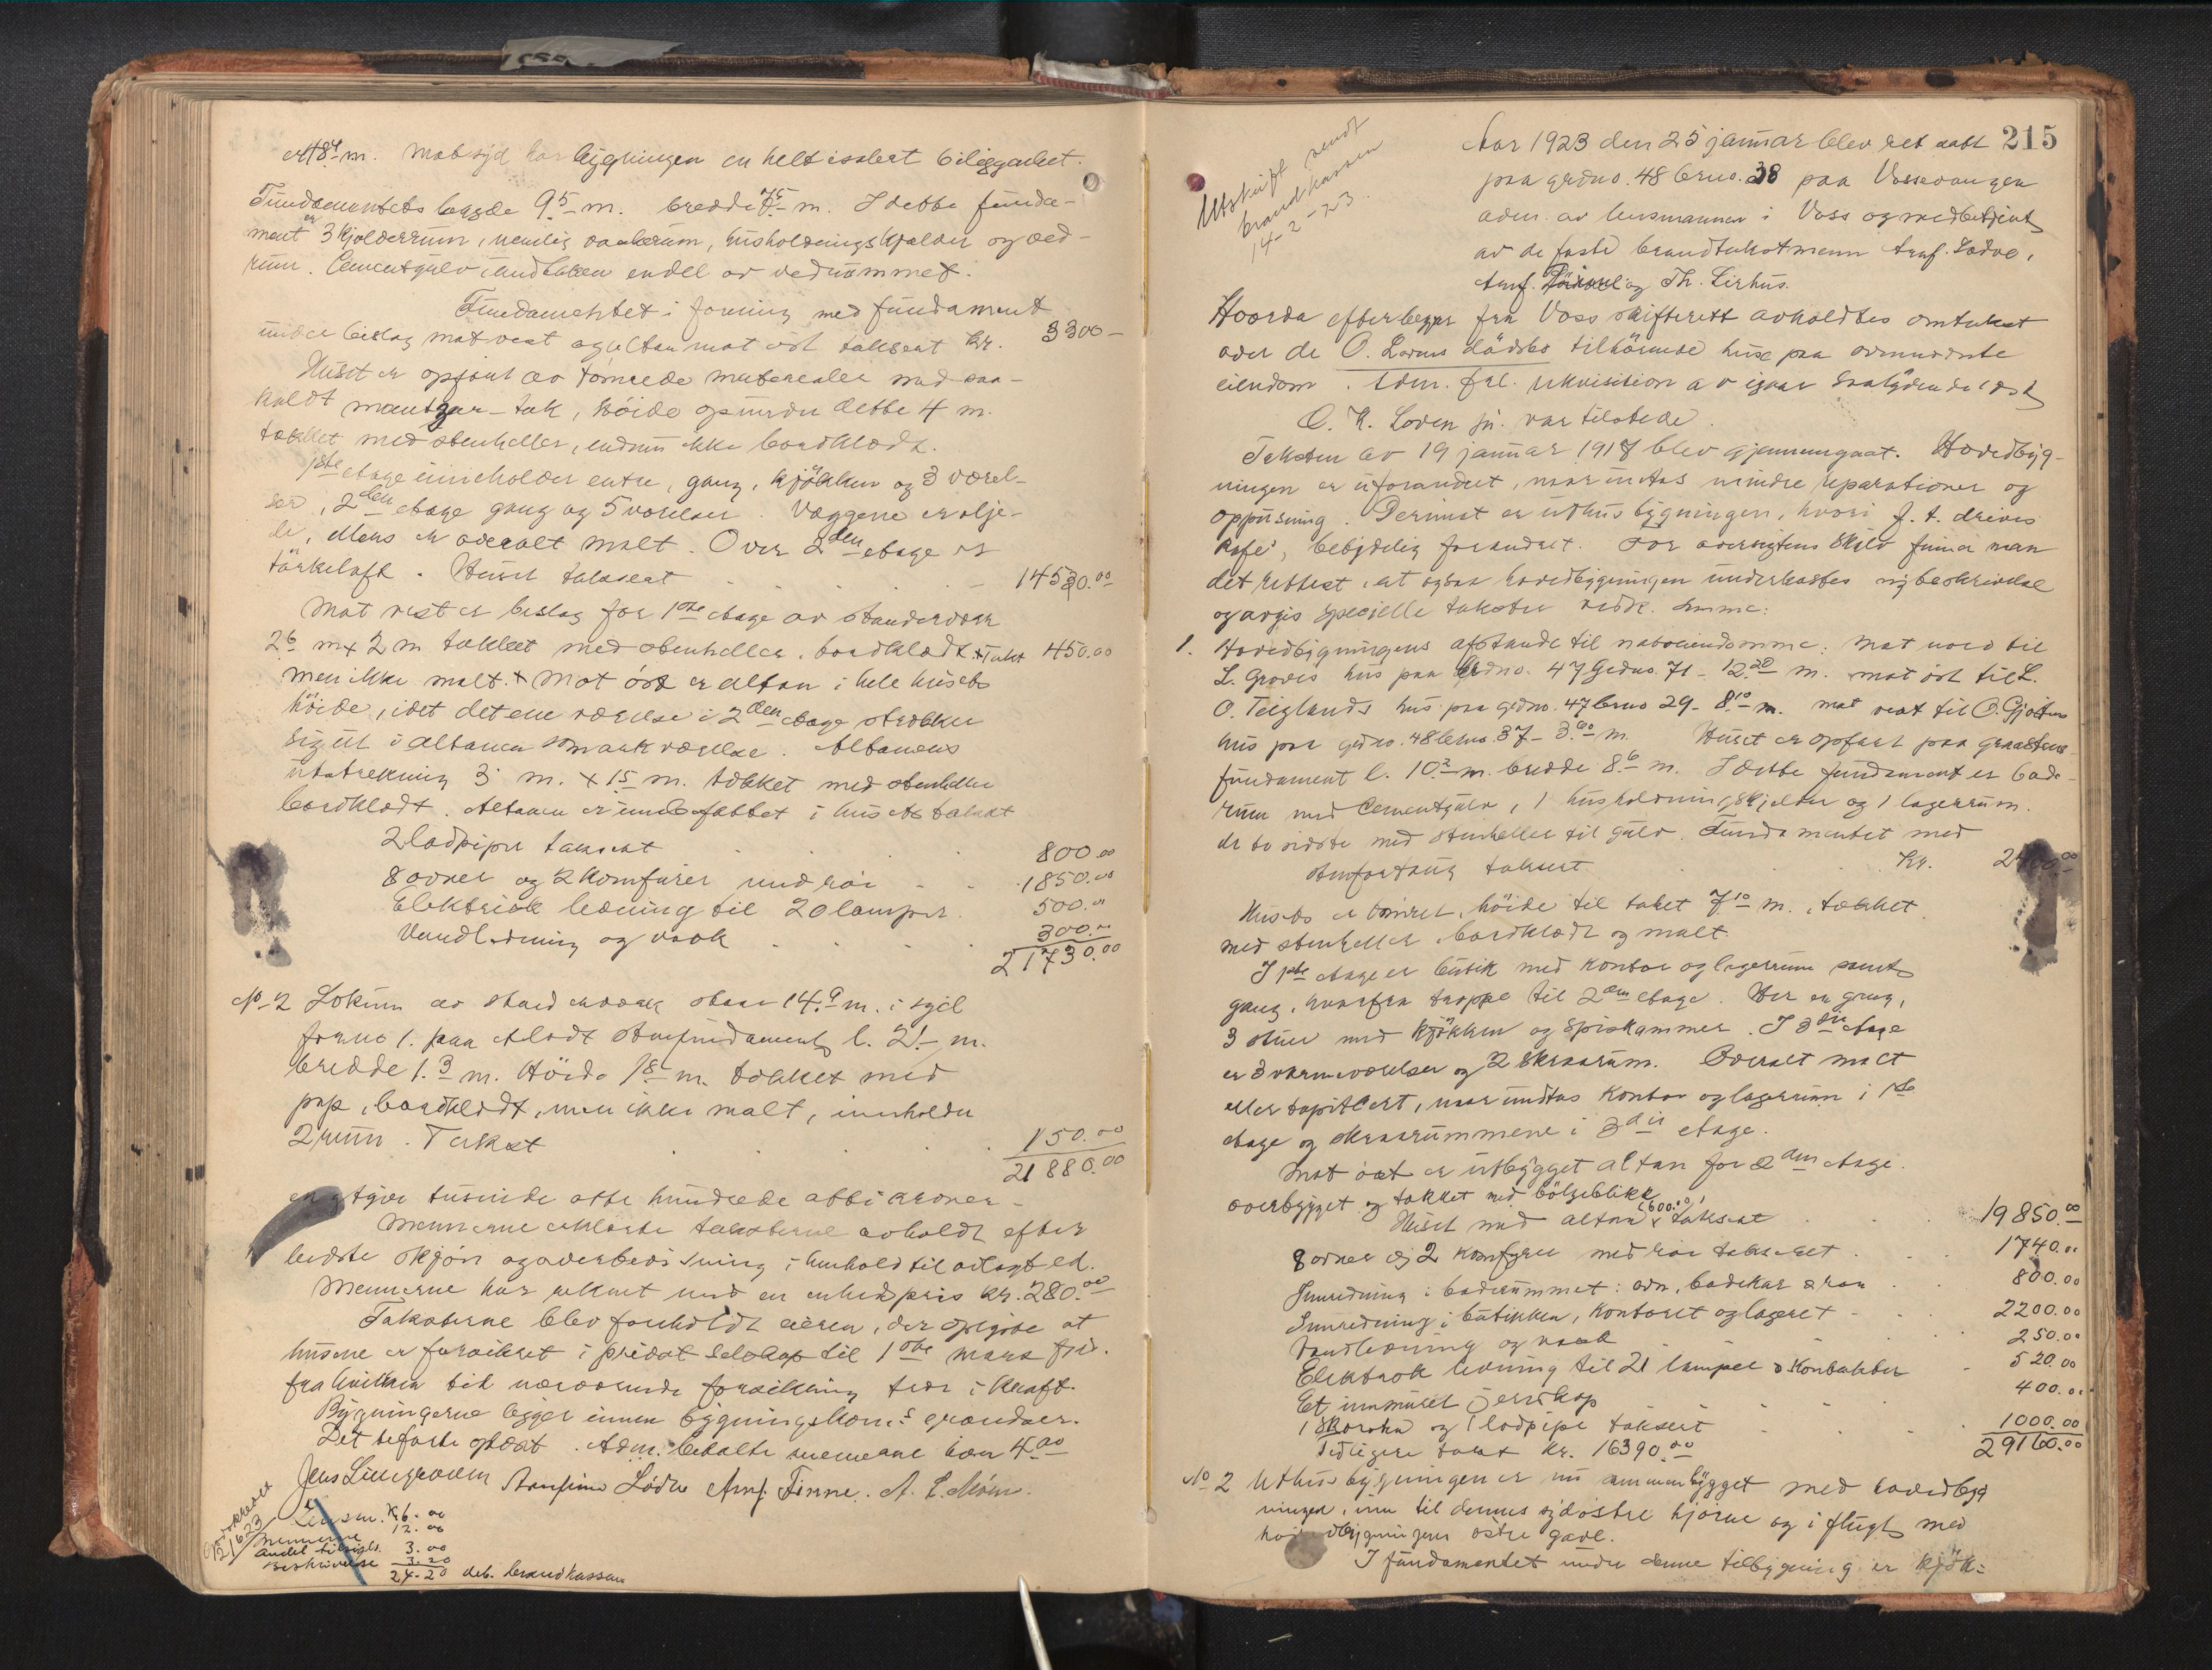 mot syd har bygningen en helt isolert beliggenhet.
Fundamentets længde 9.5 m. bredde 7.5 m. I dette funda-
ment er 3 kjælderrum, nemlig vaskerum, husholdningskjælder og ved-
rum. Cementgulv undtaken endel av vedrummet.
Fundamentet i forening med fundament
under beslag mot vest og altan mot øst taksert Kr. 3300 –
Huset er opført av tømrede materealer med saa-
kaldt mansar-tak, høide op under dette 4 m.
tækket med stenheller, endnu ikke bordklædt.
1ste etage inneholder entre, gang, kjøkken og 3 værel-
ser, 2den etage gang og 5 værelser. Væggene er olje-
de, ellers er overalt malt. Over 2den etage er
tørkeloft. Huset taksert 14530.00
Mot vest er beslag for 1ste etage av standerværk
2.6 m x 2 m tækket med stenheller, bordklædt + Takst 450.00
men ikke malt. + Mot øst er altan i hele husets
høide, idet det ene værelse i 2den etage strækker
sig ut i altanen som arkværelse. Altanens
utstrekning 3 m. x 1.5 m. tækket med stenheller
bordklædt. Altanen er indbefattet i husets takst
2 ladpiper taksert 800.00
8 ovner og 2 komfurer med rør 1850.00
Elektrisk ledning til 20 lamper. 500.00
Vandledning og vask 300.00
21730.00
No 2 Lokum av standerværk staar 14.9 m. i syd
for no 1. paa stensfundament l. 2.1 m.
bredde 1.3 m. Høide 1.8 m. tækket med
pap, bordklædt, men ikke malt, inneholder
2 rum. Takst 150.00
21880.00
tusinde otte hundrede otti kroner –
Mennerne erklærte taksterne avholdt efter
bedste skjøn og overbevisning i henhold til avlagt ed.
Mennerne har regnet med en enhedspris kr. 280.00
Taksterne blev foreholdt eieren, der opgav at
husene er forsikret i privat selskap til 1ste mars førs.
fra hvilken tid nærværende forsikring trær i kraft.
Bygningerne ligger innen bygningskom.s grændser.
Det tilførte oplæst. Adm. betalte mennerne hver 4.00
Jens Lillegraven Arnfinn Lødve Arnf. Finne. A. L. Mom.
Lensm. K 6.00
Mennerne 12.00
Andel tilsigts. 3.00
Beskrivelse 3.20
24.20 deb. brandkassen
215
Utskrift sendt
brandkassen
14-2-23.
Aar 1923 den 25 januar blev ret satt
paa grdno. 48 brno. 38 paa Vossevangen
adm. av lensmannen i Voss og medbetjent
av de faste brandtakstmenn Arnf. Lødve,
Arnf. og Th. Lirhus.
Hvorda efter begjær fra Voss skifterett avholdtes omtakst
over de O. Lovens dødsbo tilhørende huse paa ovennævnte
eiendom. Adm. frl. rekvisition av igaar
O. K. Loven jr. var tilstede.
Taksten av 19 januar 1918 blev gjennemgaat. Hovedbyg-
ningen er uforandret, naar undtas mindre reparationer og
oppusning. Derimot er uthusbygningen, hvori f. t. drives
kafe, betydelig forandret. For oversigtens skyld finner man
det rettest, at ogsaa hovedbygningen underkastes ny beskrivelse
og avgis specielle takster vedk. samme:
1. Hovedbygningens afstande til naboeiendomme: mot nord til
L. Groves hus paa grdno. 47 brno. 71 - 12.20 m. mot øst til L.
O. Teiglands hus paa grdno. 47 brno 29 - 8.10 m. mot vest til O. Gjøstens
hus paa grdno. 48 brno. 37 - 3.60 m. Huset er opført paa graastens-
fundament l. 10.2 m. bredde 8.6 m. I dette fundament er bade-
rum med Cementgulv, 1 husholdningskjelder og 1 lagerrum.
de to sidste med stenheller til gulv. Fundamentet med
taksert Kr.
Huset er tømret, høide til taket 7.10 m., tækket
med stenheller, bordklædt og malt.
I 1ste etage er butik med kontor og lagerrum samt
gang, hvorfra trappe til 2den etage. Der er gang,
3 stuer med kjøkken og spiskammer. I 3die etage
er 3 værelser og 2 skraarum. Overalt malt
eller tapitsert, naar undtas kontor og lagerrum i 1ste
etage og skraarummene i 3die etage.
Mot øst er utbygget altan for 2den etage.
overbygget og tækket med bølgeblikk.
Huset med altan (600.00) taksert 19850.00
8 ovner og 2 komfyrer med rør taksert 1740.00
Innredning i baderummet: ovn, badekar & rør 800.00
Innredning i butikken, kontoret og lageret 2200.00
Vandledning og vask 250.00
Elektrisk ledning til 21 lamper & kontakter 520.00
Et innmuret jernskap 400.00
1 skorsten og 1 ladpipe taksert 1000.00
Tidligere takst kr. 16390.00 29160.00
No 2 Uthusbygningen er nu sammenbygget med hovedbyg-
ningen, inn til dennes sydøstre hjørne og i flugt med
hovedbygningens østre gavl.
I fundamentet under denne tilbygning er kjøk-